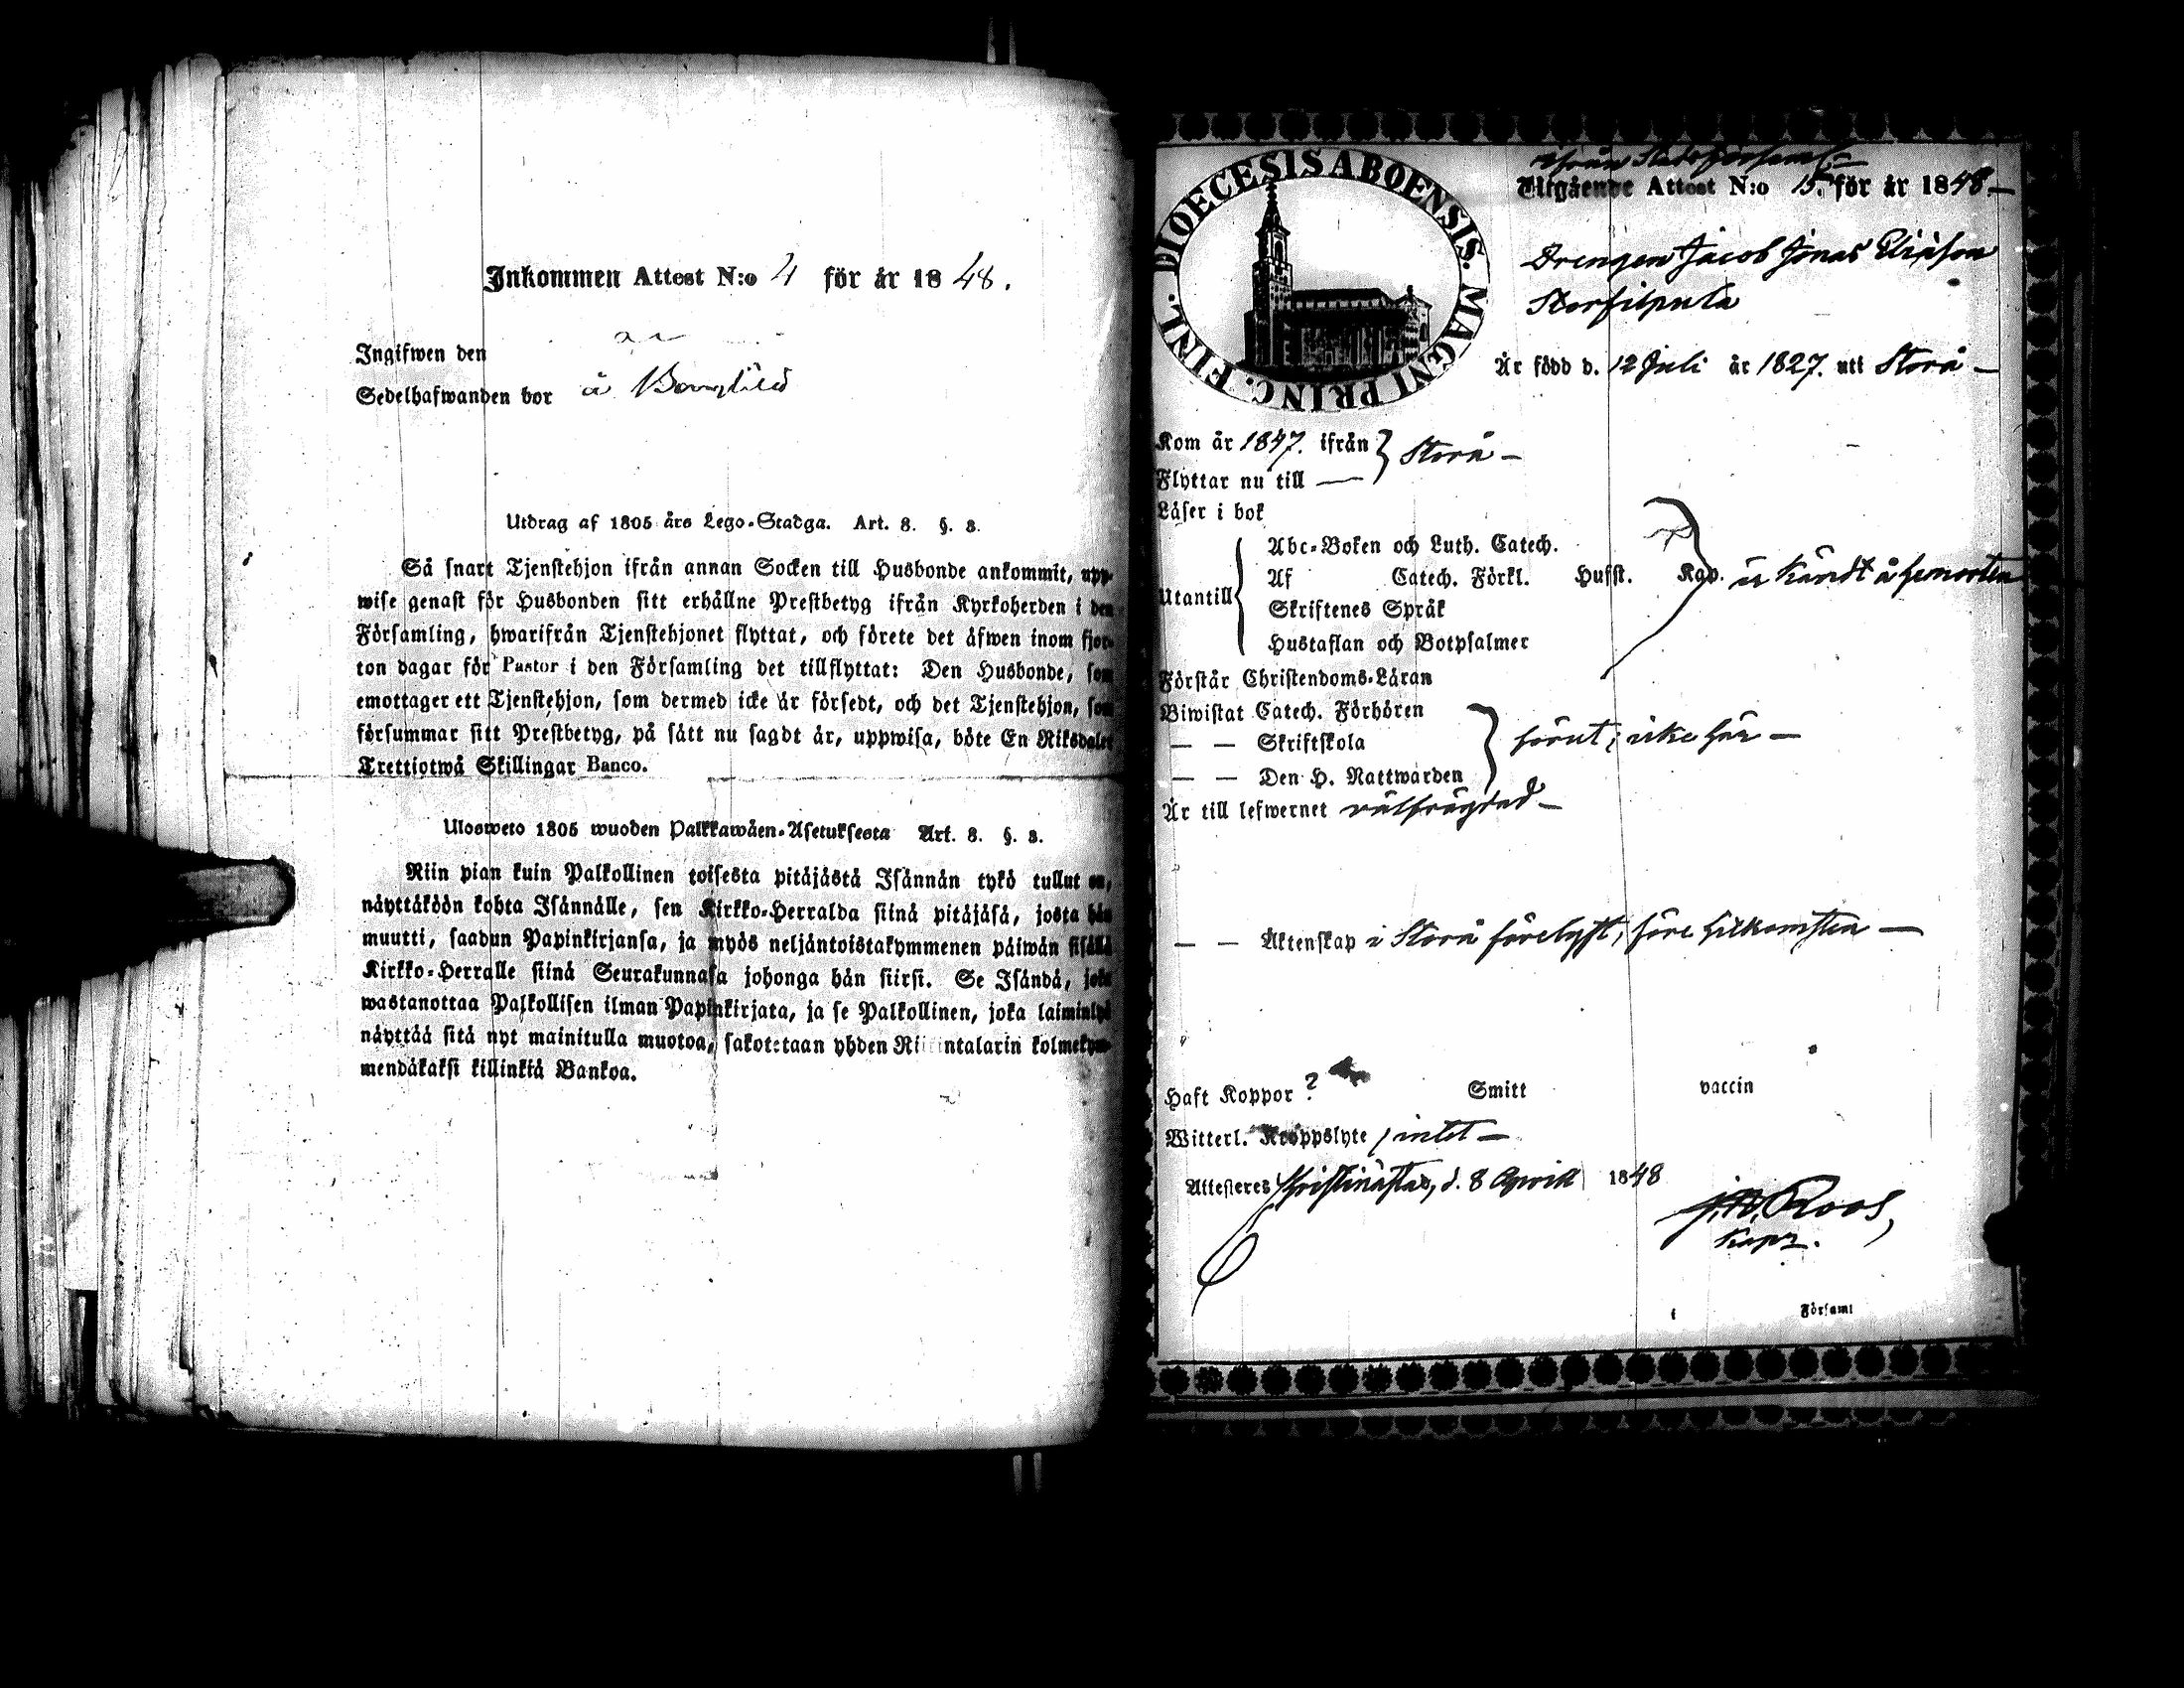 Inkommen Attest N:o 4 för år 1848.
Ingifwen den
Sedelhafwanden bor å
Utdrag af 1805 års Lego-Stadga. Art. 8. §. 3.
Så snart Tjenstehjon ifrån annan Socken till Husbonde ankommit, upp-
wise genast för Husbonden sitt erhållne Prestbetyg ifrån Kyrkoherden i den
Församling, hwarifrån Tjenstehjonet flyttat, och förete det äfwen inom fjor-
ton dagar för Pastor i den Församling det tillflyttat: Den Husbonde, som
emottager ett Tjenstehjon, som dermed icke är försedt, och det Tjenstehjon, som
försummar sitt Prestbetyg, på sätt nu sagdt är, uppwisa, böte En Riksdaler
Trettiotwå Skillingar Banco.
Ulosweto 1805 wuoden Palkkawäen-Asetuksesta Art. 8. §. 3.
Niin pian kuin Palkollinen toisesta pitäjästä Isännän tykö tullut on,
näyttäköön kohta Isännälle, sen Kirkko-Herralda siinä pitäjäsä, josta hän
muutti, saadun Papinkirjansa, ja myös neljäntoistakymmenen päiwän sisällä
Kirkko-Herralle siinä Seurakunnasa johonga hän siirsi. Se Isändä, joka
wastanottaa Palkollisen ilman Papinkirjata, ja se Palkollinen, joka laiminlyö
näyttää sitä nyt mainitulla muotoa, sakotetaan yhden Riikintalarin kolmekym-
mendäkaksi killinkiä Bankoa.
DIOECESIS ABOENSIS. MAGNI PRINC. FINL.
Ifrån Stadsförsaml.
Utgående Attest N:o 15. för år 1848.
Drengen Jacob Jonas Eliasson
Storfilpula
Är född d. 12 Juli år 1827. uti Storå
Kom år 1847. ifrån } Storå
Flyttar nu till
Läser i bok
Abc-Boken och Luth. Catech.
Utantill Af Catech. Förkl. Husst. Kap. är kändt å hemorten
Skriftenes Språk
Hustaflan och Botpsalmer
Förstår Christendoms-Läran
Biwistat Catech. Förhören
— — Skriftskola förut; icke här
— — Den H. Nattwarden
Är till lefwernet välfrägdad
— — Äktenskap i Storå förelyst, före hitkomsten
Haft Koppor ? Smitt vaccin
Witterl. Kroppslyte intet
Attesteres Kristinæstad, d. 8 April 1848
J.N. Roos,
Kapn.
i Församl